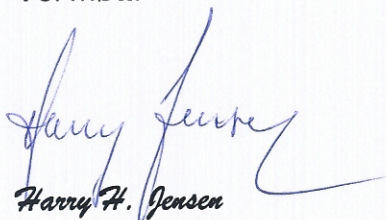 Harry Jensen
Harry H. Jensen